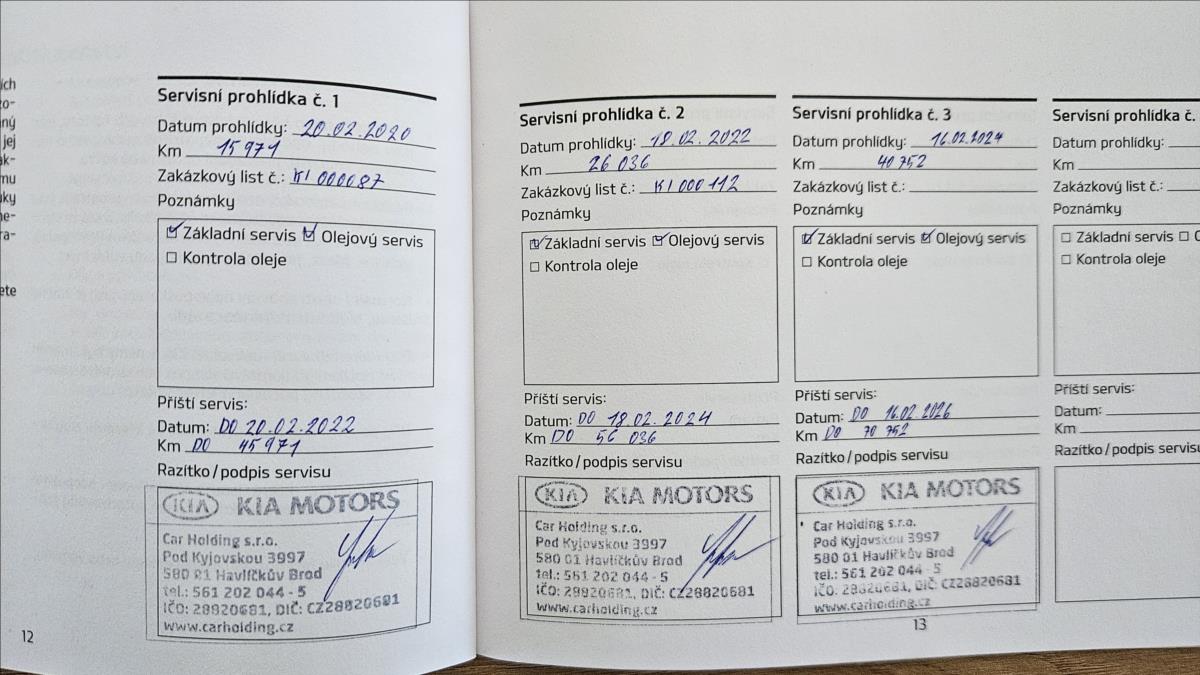 ích
zo-
ný
jej
ak-
mu
uky
ne-
ra-
ete
Servisní prohlídka č. 1
Datum prohlídky: 20.02.2020
Km 15 971
Zakázkový list č.: KI 000087
Poznámky
Základní servis Olejový servis
Kontrola oleje
Příští servis:
Datum: DO 20.02.2022
Km DO 45 971
Razítko/podpis servisu
KIA KIA MOTORS
Car Holding s.r.o.
Pod Kyjovskou 3997
580 01 Havlíčkův Brod
tel.: 561 202 044 - 5
IČO: 28820681, DIČ: CZ28820681
www.carholding.cz
12
Servisní prohlídka č. 2
Datum prohlídky: 18.02.2022
Km 26 036
Zakázkový list č.: KI 000 112
Poznámky
Základní servis Olejový servis
Kontrola oleje
Příští servis:
Datum: DO 18.02.2024
Km DO 56 036
Razítko/podpis servisu
KIA KIA MOTORS
Car Holding s.r.o.
Pod Kyjovskou 3997
580 01 Havlíčkův Brod
tel.: 561 202 044 - 5
IČO: 28820681, DIČ: CZ28820681
www.carholding.cz
Servisní prohlídka č. 3
Datum prohlídky: 16.02.2024
Km 40 752
Zakázkový list č.:
Poznámky
Základní servis Olejový servis
Kontrola oleje
Příští servis:
Datum: DO 16.02.2026
Km DO 70 752
Razítko/podpis servisu
KIA KIA MOTORS
Car Holding s.r.o.
Pod Kyjovskou 3997
580 01 Havlíčkův Brod
tel.: 561 202 044 - 5
IČO: 28820681, DIČ: CZ28820681
www.carholding.cz
13
Servisní prohlídka č.
Datum prohlídky:
Km
Zakázkový list č.:
Poznámky
Základní servis
Kontrola oleje
Příští servis:
Datum:
Km
Razítko/podpis servisu